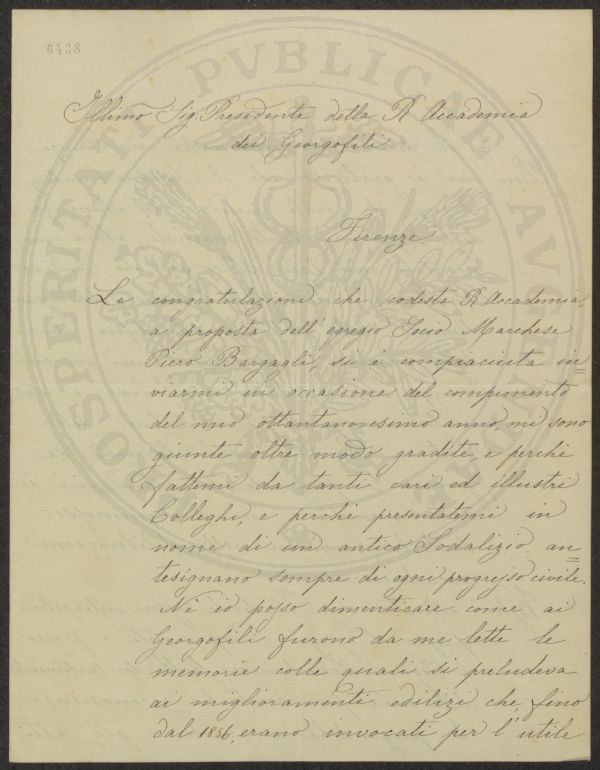 6438
PROSPERITATI PVBLICAE AVGENDAE
Illimo Sig. Presidente della R Accademia
dei Georgofili
Firenze
Le congratulazioni che codesta R Accademia,
a proposta dell'egregio Socio Marchese
Piero Bargagli, si è compiaciuta in=
viarmi in occasione del compimento
del mio ottantanovesimo anno, mi sono
giunte oltre modo gradite, e perchè
fattemi da tanti cari ed illustri
Colleghi, e perchè presentatemi in
nome di un antico Sodalizio, an=
tesignano sempre di ogni progresso civile.
Nè io posso dimenticare come ai
Georgofili furono da me lette le
memorie colle quali si preludeva
ai miglioramenti edilizi che, fino
dal 1856, erano invocati per l'utile